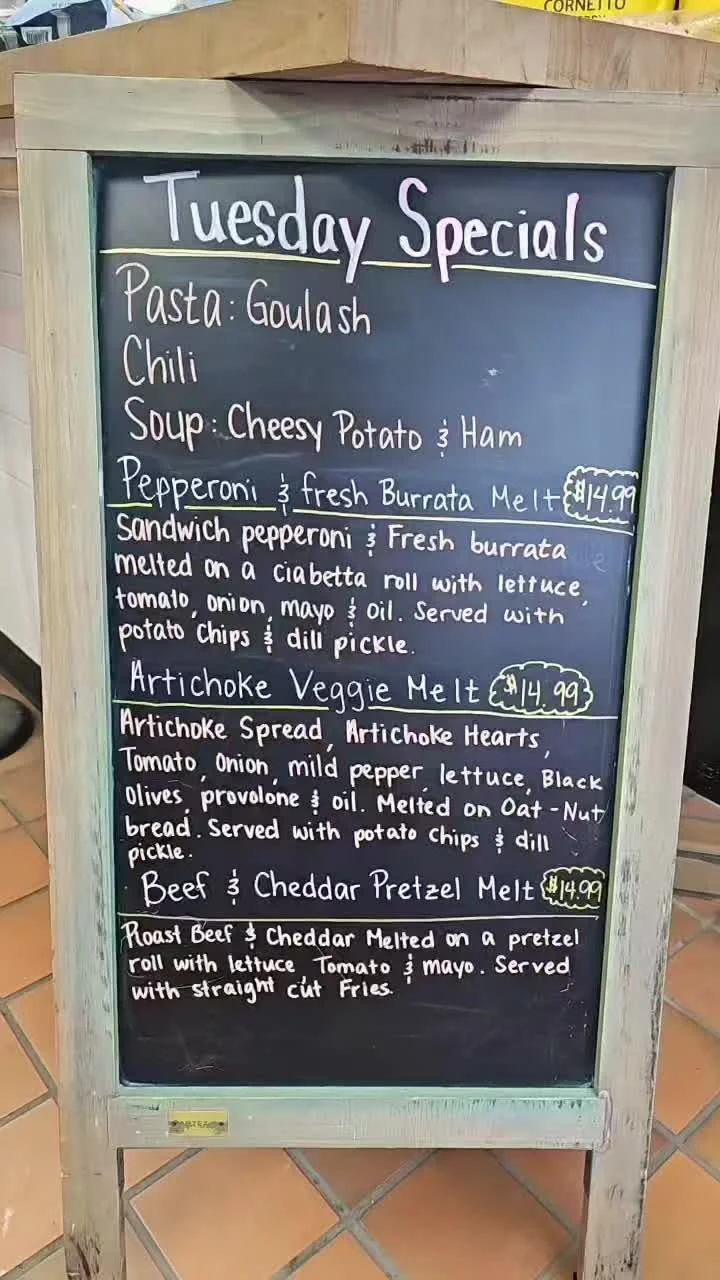 CORNETTO
Tuesday Specials
Pasta: Goulash
Chili
Soup: Cheesy Potato & Ham
Pepperoni & fresh Burrata Melt $14.99
Sandwich pepperoni & Fresh burrata
melted on a ciabetta roll with lettuce,
tomato, onion, mayo & oil. Served with
potato chips & dill pickle.
Artichoke Veggie Melt $14.99
Artichoke Spread, Artichoke Hearts,
Tomato, Onion, mild pepper, lettuce, Black
Olives, provolone & oil. Melted on Oat-Nut
bread. Served with potato chips & dill
pickle.
Beef & Cheddar Pretzel Melt $14.99
Roast Beef & Cheddar Melted on a pretzel
roll with lettuce, Tomato & mayo. Served
with straight cut Fries.